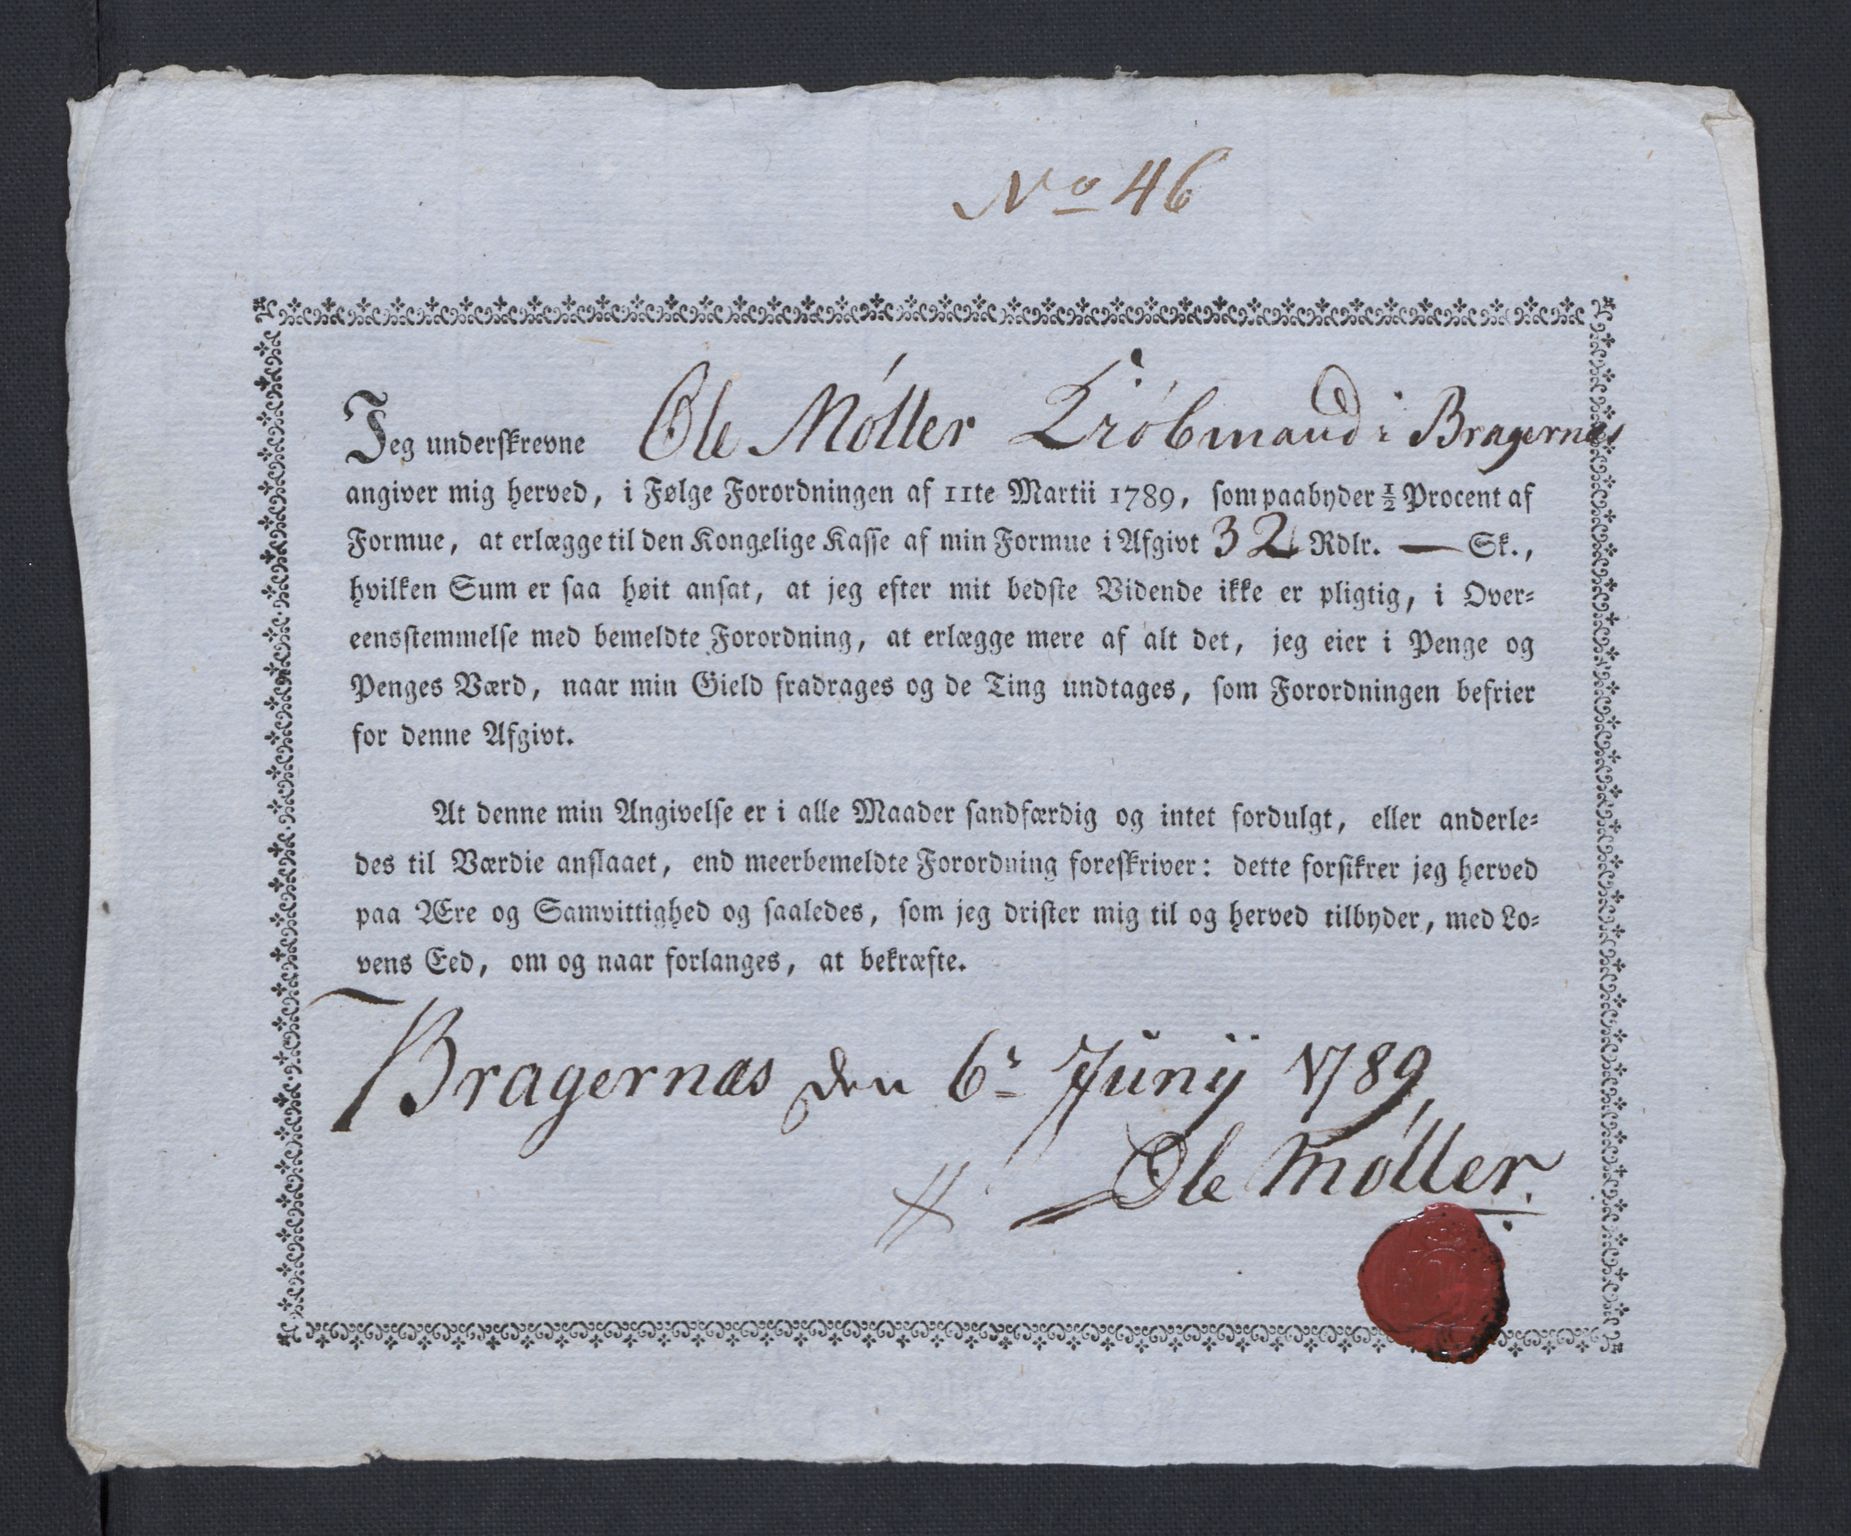 No 46
Jeg underskrevne Ole Møller Kiøbmand i Bragernæs
angiver mig herved, i Følge Forordningen af 11te Martii 1789, som paabyder ½ Procent af
Formue, at erlægge til den Kongelige Kasse af min Formue i Afgivt 32 Rdlr. — Sk.,
hvilken Sum er saa høit ansat, at jeg efter mit bedste Vidende ikke er pligtig, i Over-
eensstemmelse med bemeldte Forordning, at erlægge mere af alt det, jeg eier i Penge og
Penges Værd, naar min Gield fradrages og de Ting undtages, som Forordningen befrier
for denne Afgivt.
At denne min Angivelse er i alle Maader sandfærdig og intet fordulgt, eller anderle-
des til Værdie anslaaet, end meerbemeldte Forordning foreskriver: dette forsikrer jeg herved
paa Ære og Samvittighed og saaledes, som jeg drister mig til og herved tilbyder, med Lo-
vens Eed, om og naar forlanges, at bekræfte.
Bragernæs den 6t Junij 1789
Ole Møller.